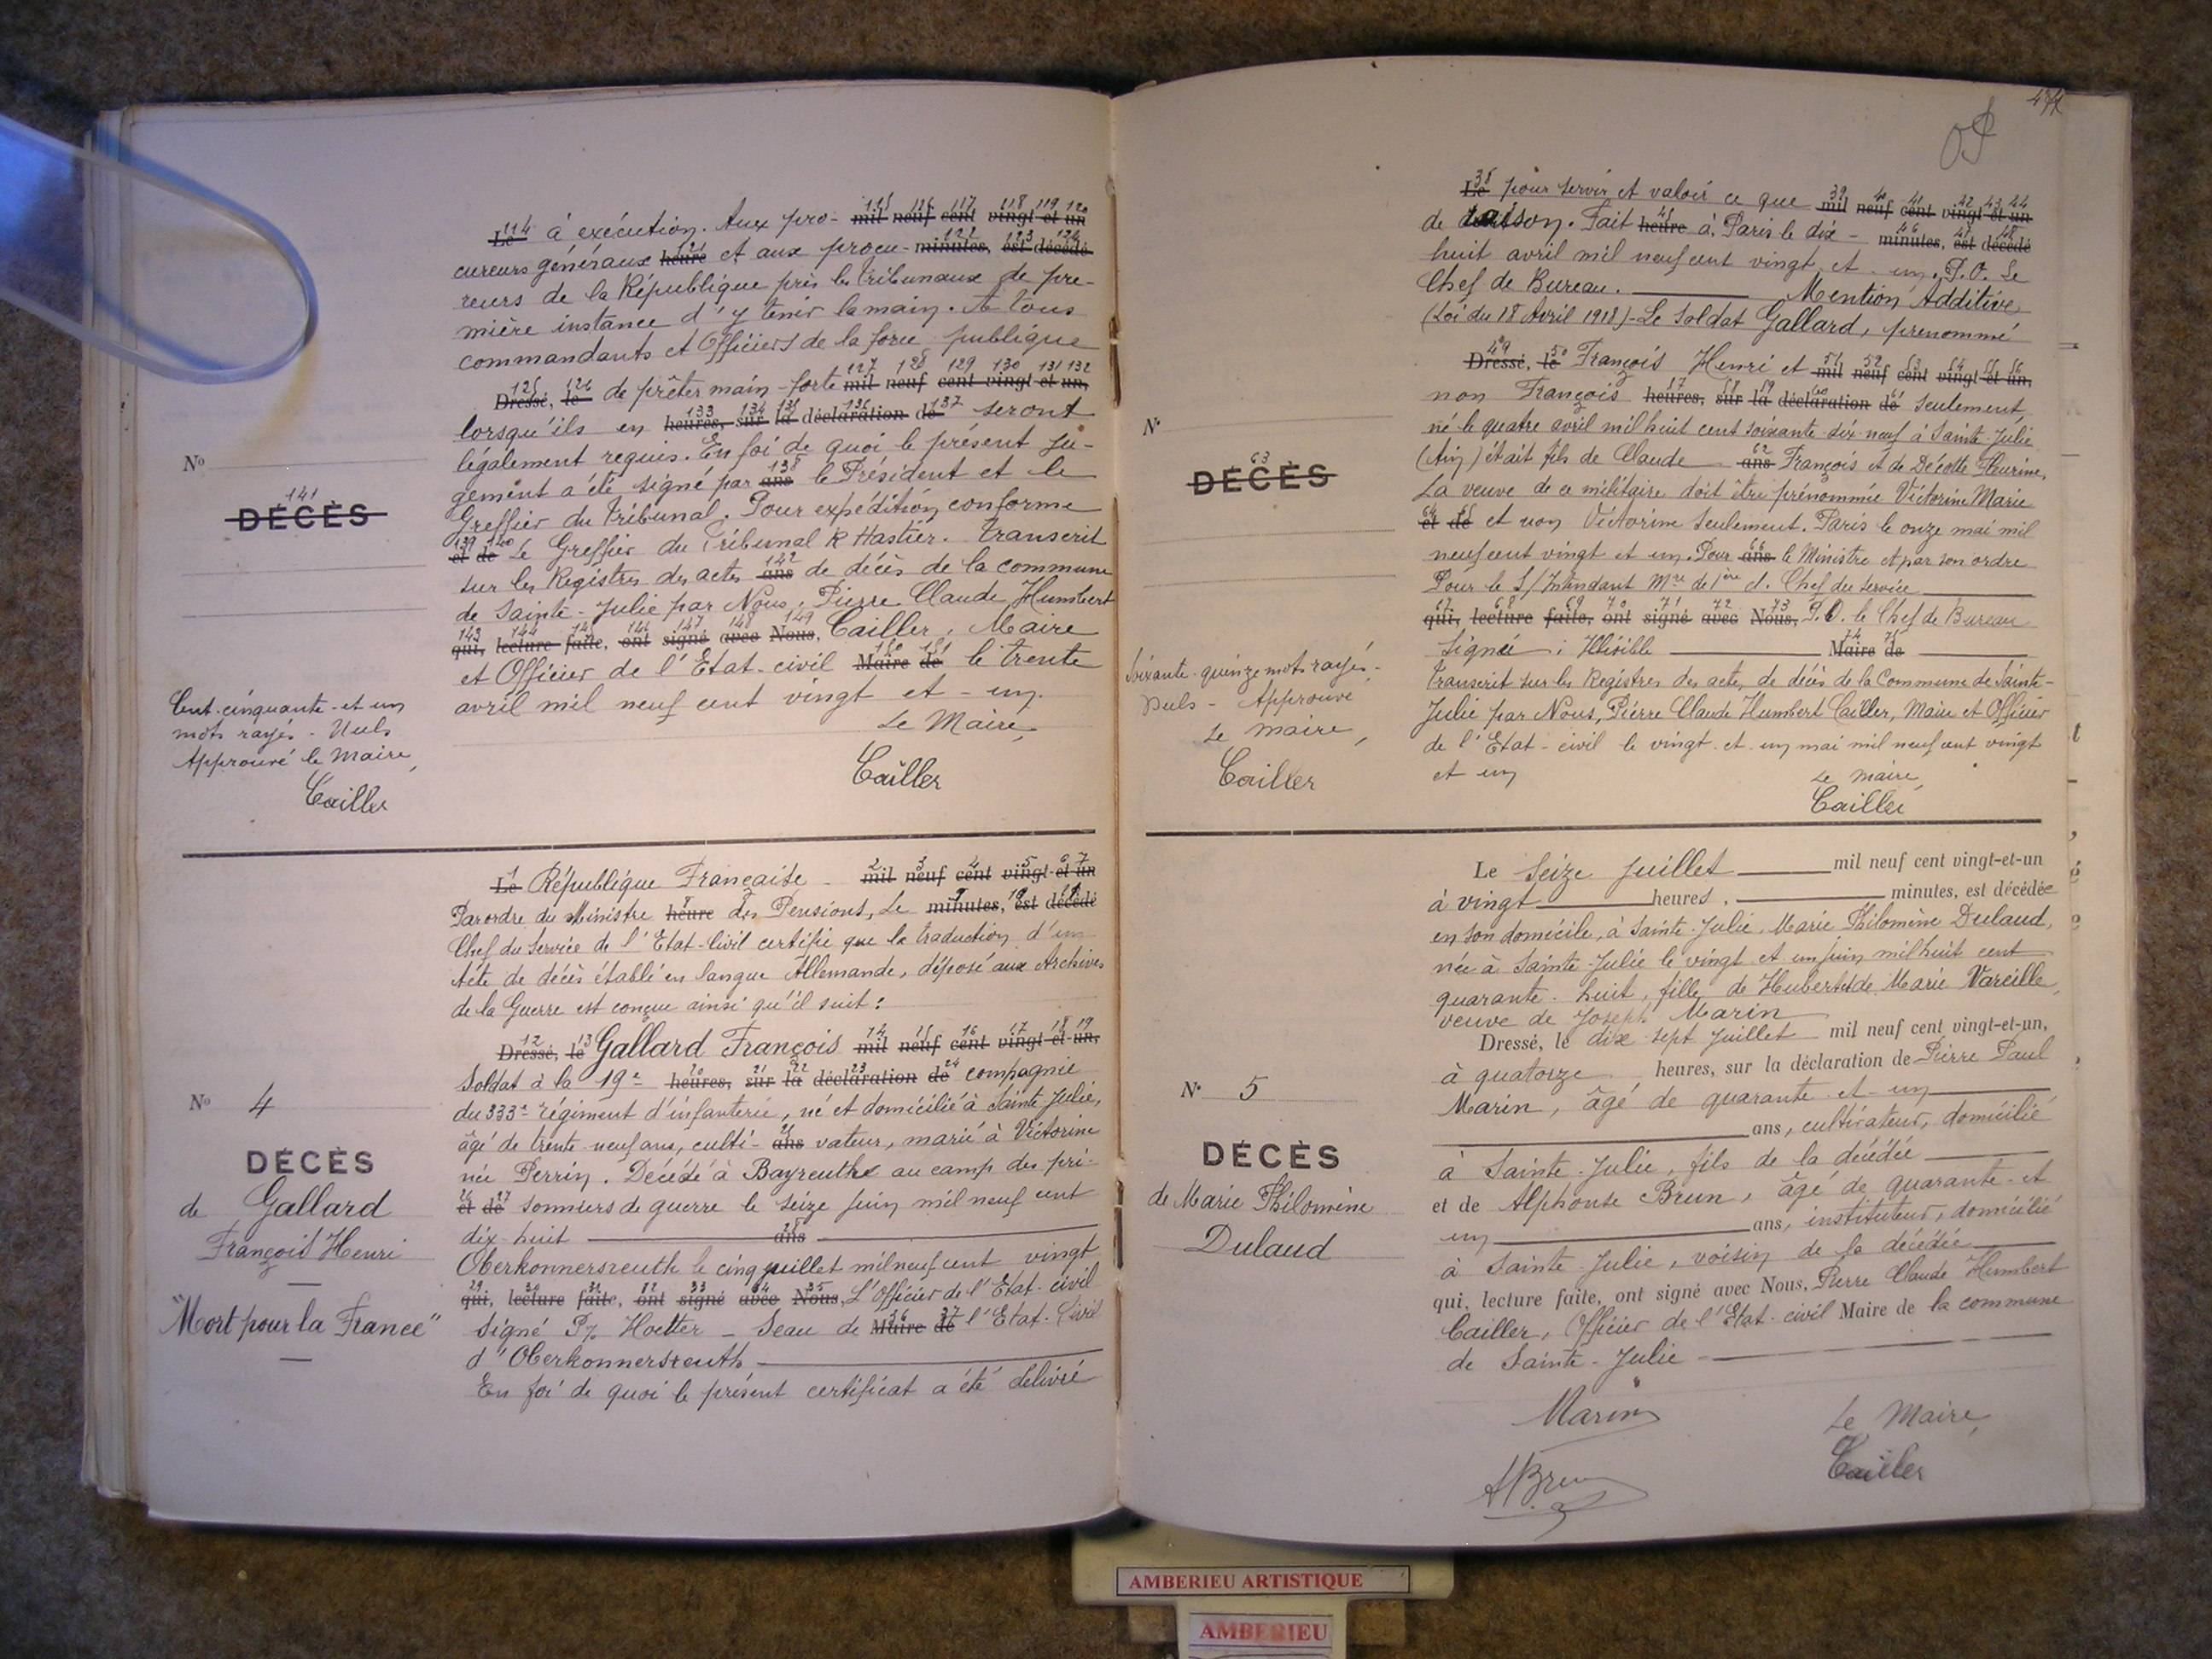 114 115 116 117 118 119 120
Le à exécution. Aux pro- mil neuf cent vingt et un
121 122 123 124
cureurs généraux heure et aux procu- minutes, est décédé
reurs de la République près les tribunaux de pre-
mière instance d'y tenir la main. A tous
commandants et Officiers de la force publique
125 126 127 128 129 130 131 132
Dressé, le de prêter main-forte mil neuf cent vingt et un,
133 134 135 136 137
lorsqu'ils en heures, sur la déclaration de seront
légalement requis. En foi de quoi le présent ju-
138
gement a été signé par ans le Président et le
Greffier du Tribunal. Pour expédition conforme
139 140
et de Le Greffier du Tribunal R Hastier. Transcrit
142
sur les Registres des actes ans de décès de la commune
de Sainte-Julie par Nous, Pierre Claude Humbert
143 144 145 146 147 148 149
qui, lecture faite, ont signé avec Nous, Cailler, Maire
150 151
et Officier de l'Etat-civil Maire de le trente
avril mil neuf cent vingt et - un.
Le Maire,
Cailler
No
141
DÉCÈS
Cent-cinquante-et un
mots rayés - Nuls
Approuvé le Maire,
Cailler
1 2 3 4 5 6 7
Le République Française - mil neuf cent vingt-et-un
8 9 10 11
Par ordre du Ministre heure des Pensions, Le minutes, est décédé
Chef du Service de l'Etat-Civil certifie que la traduction d'un
Acte de décès établi en langue Allemande, déposé aux Archives
de la Guerre est conçue ainsi qu'il suit :
12 13 14 15 16 17 18 19
Dressé, le Gallard François mil neuf cent vingt-et-un,
20 21 22 23 24
Soldat à la 19e heures, sur la déclaration de compagnie
du 333e régiment d'infanterie, né et domicilié à Sainte Julie,
25
âgé de trente-neuf ans, culti- ans vateur, marié à Victorine
née Perrin. Décédé à Bayreuthe au camp des pri-
26 27
et de sonniers de guerre le seize juin mil neuf cent
28
dix-huit ans
Oberkonnersreuth le cinq juillet mil neuf cent vingt
29 30 31 32 33 34 35
qui, lecture faite, ont signé avec Nous, L'Officier de l'Etat-civil
36 37
Signé Pr Hoetter - Seau de Maire de l'Etat-Civil
d'Oberkonnersreuth
En foi de quoi le présent certificat a été délivré
No 4
DÉCÈS
de Gallard
François Henri
"Mort pour la France"
38 39 40 41 42 43 44
Le pour servir et valoir ce que mil neuf cent vingt-et-un
45 46 47 48
de raison. Fait heure à Paris le dix - minutes, est décédé
huit avril mil neuf cent vingt et - un. P.O. Le
Chef de Bureau. Mention Additive,
(Loi du 18 Avril 1918) - Le soldat Gallard, prenommé
49 50 51 52 53 54 55 56
Dressé, le François Henri et mil neuf cent vingt-et-un,
57 58 59 60 61
non François heures, sur la déclaration de seulement
né le quatre avril mil huit cent soixante-dix-neuf à Sainte-Julie
62
(Ain) était fils de Claude ans François et de Décotte Fleurine,
La veuve de ce militaire doit être prénommée Victorine Marie
64 65
et de et non Victorine seulement. Paris le onze mai mil
66
neuf cent vingt et un. Pour ans le Ministre et par son ordre
Pour le S/Intendant Mre de 1ère cl. Chef du Service
67 68 69 70 71 72 73
qui, lecture faite, ont signé avec Nous, P.O. le Chef de Bureau
74 75
Signé : Illisible Maire de
Transcrit sur les Registres des actes de décès de la Commune de Sainte-
Julie par Nous, Pierre Claude Humbert Cailler, Maire et Officier
de l'Etat-civil le vingt-et-un mai mil neuf cent vingt
et un
Le maire,
Cailler
N°
63
DÉCÈS
Soixante-quinze mots rayés -
Nuls - Approuvé
Le maire,
Cailler
Le Seize Juillet mil neuf cent vingt-et-un
à vingt heures, minutes, est décédée
en son domicile, à Sainte-Julie, Marie Philomène Dulaud,
née à Sainte-Julie le vingt-et un juin mil huit cent
quarante-huit, fille de Hubert et de Marie Vareille,
veuve de Joseph Marin
Dressé, le dix-sept Juillet mil neuf cent vingt-et-un,
à quatorze heures, sur la déclaration de Pierre Paul
Marin, âgé de quarante-et-un
ans, cultivateur, domicilié
à Sainte-Julie, fils de la décédée
et de Alphonse Brun, âgé de quarante-et
un ans, instituteur, domicilié
à Sainte-Julie, voisin de la décédée
qui, lecture faite, ont signé avec Nous, Pierre Claude Humbert
Cailler, Officier de l'Etat-civil Maire de la commune
de Sainte-Julie
Marin
Le Maire,
ABrun
Cailler
N° 5
DÉCÈS
de Marie Philomène
Dulaud
AMBERIEU ARTISTIQUE
AMBERIEU